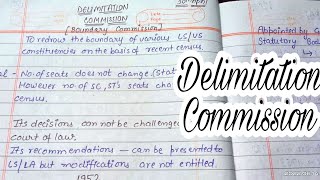 DELIMITATION
COMMISSION
[Boundary Commission]
To redraw the boundary of various LS/VS
constituencies on the basis of recent census.
No. of seats does not change (Stat
However no. of SC, ST's seats cha
census.
Its decisions can not be challenged
court of law.
Its recommendations - can be presented to
LS/LA but modifications are not entitled
1952
Appointed by
Statutory
Delimitation
Commission